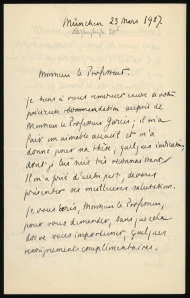 München 23 Mars 1907
Monsieur le Professeur.
Je tiens à vous remercier encore de votre
précieuse recommandation auprès de
Monsieur le Professeur Garis; il m'a
fait un aimable accueil et m'a
donné pour ma thèse, quelques indications,
dont je lui suis très reconnaissant.
Il m'a prié d'autre part, de vous
présenter ses meilleures salutations.
Je vous écris, Monsieur le Professeur,
pour vous demander, sans que cela
doive vous importuner, quelques
renseignements complémentaires.